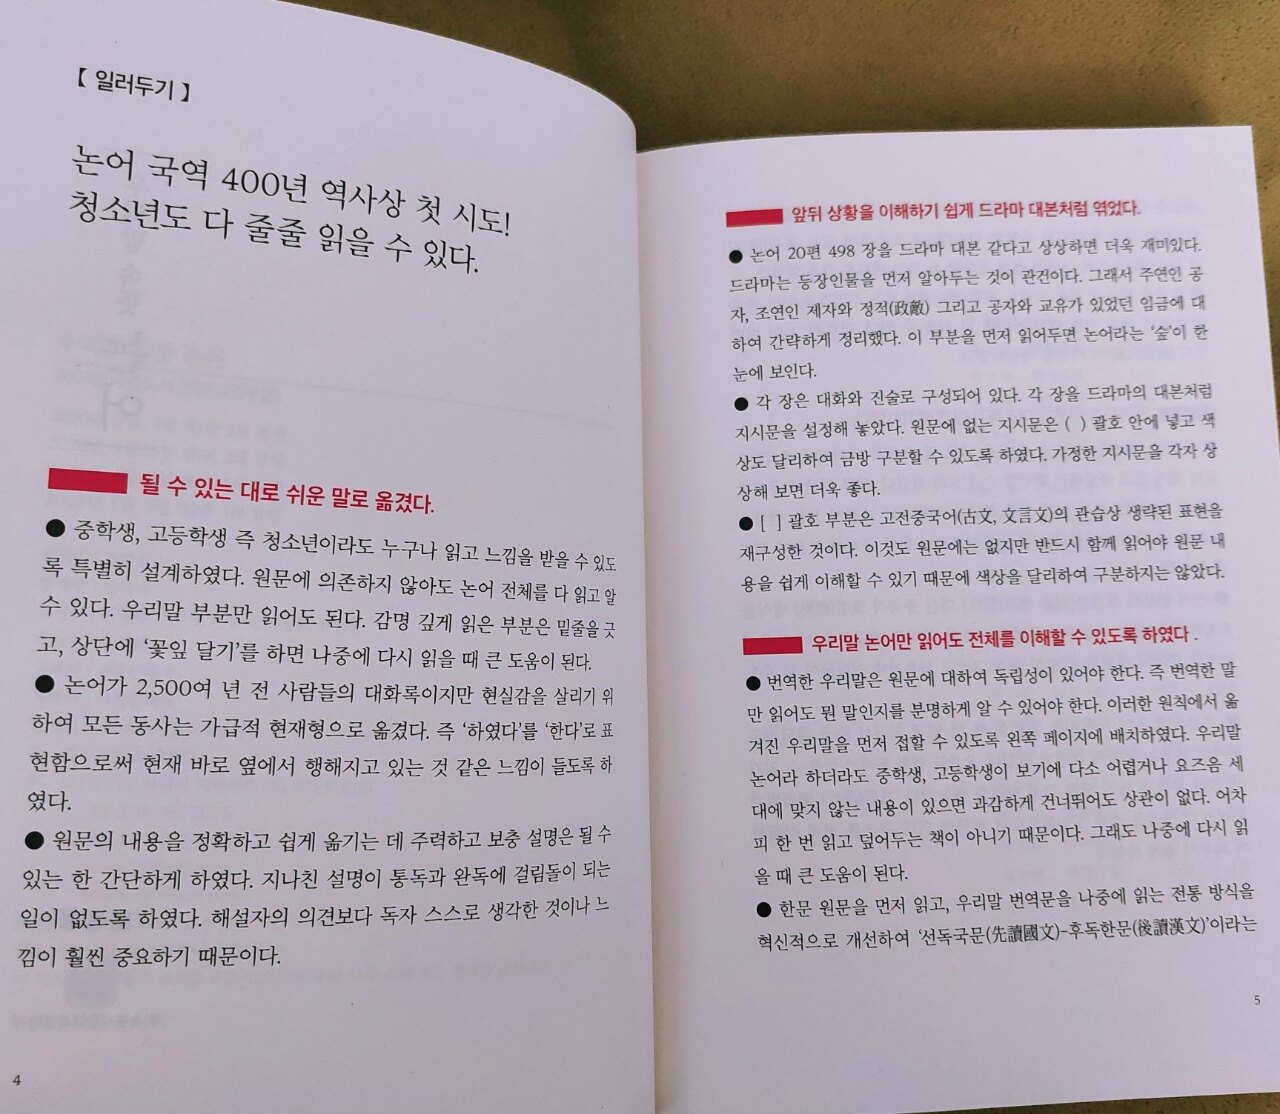 【 일러두기 】
논어 국역 400년 역사상 첫 시도!
청소년도 다 줄줄 읽을 수 있다.
될 수 있는 대로 쉬운 말로 옮겼다.
● 중학생, 고등학생 즉 청소년이라도 누구나 읽고 느낌을 받을 수 있도
록 특별히 설계하였다. 원문에 의존하지 않아도 논어 전체를 다 읽고 알
수 있다. 우리말 부분만 읽어도 된다. 감명 깊게 읽은 부분은 밑줄을 긋
고, 상단에 ‘꽃잎 달기’를 하면 나중에 다시 읽을 때 큰 도움이 된다.
● 논어가 2,500여 년 전 사람들의 대화록이지만 현실감을 살리기 위
하여 모든 동사는 가급적 현재형으로 옮겼다. 즉 ‘하였다’를 ‘한다’로 표
현함으로써 현재 바로 옆에서 행해지고 있는 것 같은 느낌이 들도록 하
였다.
● 원문의 내용을 정확하고 쉽게 옮기는 데 주력하고 보충 설명은 될 수
있는 한 간단하게 하였다. 지나친 설명이 통독과 완독에 걸림돌이 되는
일이 없도록 하였다. 해설자의 의견보다 독자 스스로 생각한 것이나 느
낌이 훨씬 중요하기 때문이다.
4
앞뒤 상황을 이해하기 쉽게 드라마 대본처럼 엮었다.
● 논어 20편 498 장을 드라마 대본 같다고 상상하면 더욱 재미있다.
드라마는 등장인물을 먼저 알아두는 것이 관건이다. 그래서 주연인 공
자, 조연인 제자와 정적(政敵) 그리고 공자와 교유가 있었던 임금에 대
하여 간략하게 정리했다. 이 부분을 먼저 읽어두면 논어라는 ‘숲’이 한
눈에 보인다.
● 각 장은 대화와 진술로 구성되어 있다. 각 장을 드라마의 대본처럼
지시문을 설정해 놓았다. 원문에 없는 지시문은 ( ) 괄호 안에 넣고 색
상도 달리하여 금방 구분할 수 있도록 하였다. 가정한 지시문을 각자 상
상해 보면 더욱 좋다.
● [ ] 괄호 부분은 고전중국어(古文, 文言文)의 관습상 생략된 표현을
재구성한 것이다. 이것도 원문에는 없지만 반드시 함께 읽어야 원문 내
용을 쉽게 이해할 수 있기 때문에 색상을 달리하여 구분하지는 않았다.
우리말 논어만 읽어도 전체를 이해할 수 있도록 하였다 .
● 번역한 우리말은 원문에 대하여 독립성이 있어야 한다. 즉 번역한 말
만 읽어도 뭔 말인지를 분명하게 알 수 있어야 한다. 이러한 원칙에서 옮
겨진 우리말을 먼저 접할 수 있도록 왼쪽 페이지에 배치하였다. 우리말
논어라 하더라도 중학생, 고등학생이 보기에 다소 어렵거나 요즈음 세
대에 맞지 않는 내용이 있으면 과감하게 건너뛰어도 상관이 없다. 어차
피 한 번 읽고 덮어두는 책이 아니기 때문이다. 그래도 나중에 다시 읽
을 때 큰 도움이 된다.
● 한문 원문을 먼저 읽고, 우리말 번역문을 나중에 읽는 전통 방식을
혁신적으로 개선하여 ‘선독국문(先讀國文)-후독한문(後讀漢文)’이라는
5